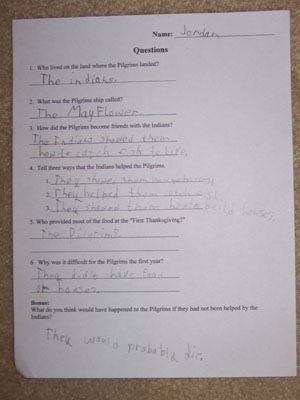 Name: Jordan
Questions
1. Who lived on the land where the Pilgrims landed?
The indians.
2. What was the Pilgrims ship called?
The May Flower.
3. How did the Pilgrims become friends with the Indians?
The Indians showed them
how to catch fish to
4. Tell three ways that the Indians helped the Pilgrims.
1. They showed them
2. They helped them
3. They showed them build houses.
5. Who provided most of the food at the "First Thanksgiving?"
The Pilgrims.
6. Why was it difficult for the Pilgrims the first year?
They didt have food
or houses.
Bonus:
What do you think would have happened to the Pilgrims if they had not been helped by the
Indians?
They would probably die.